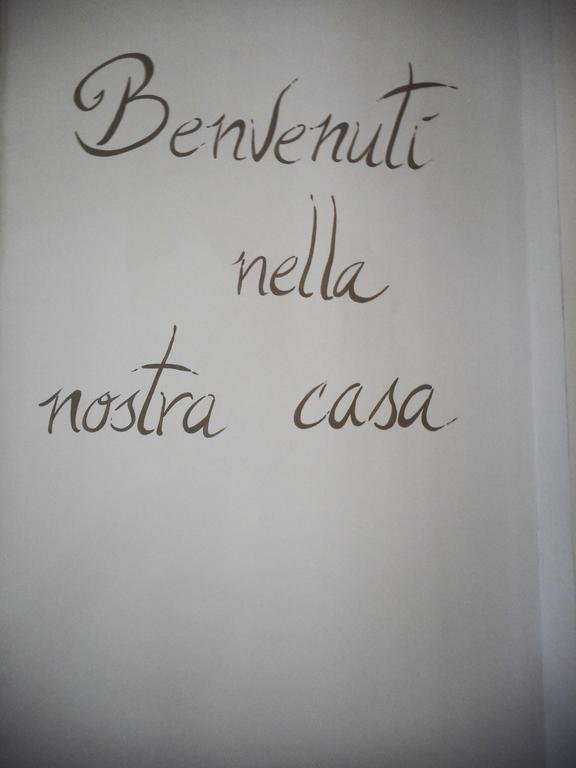 Benvenuti
nella
nostra casa